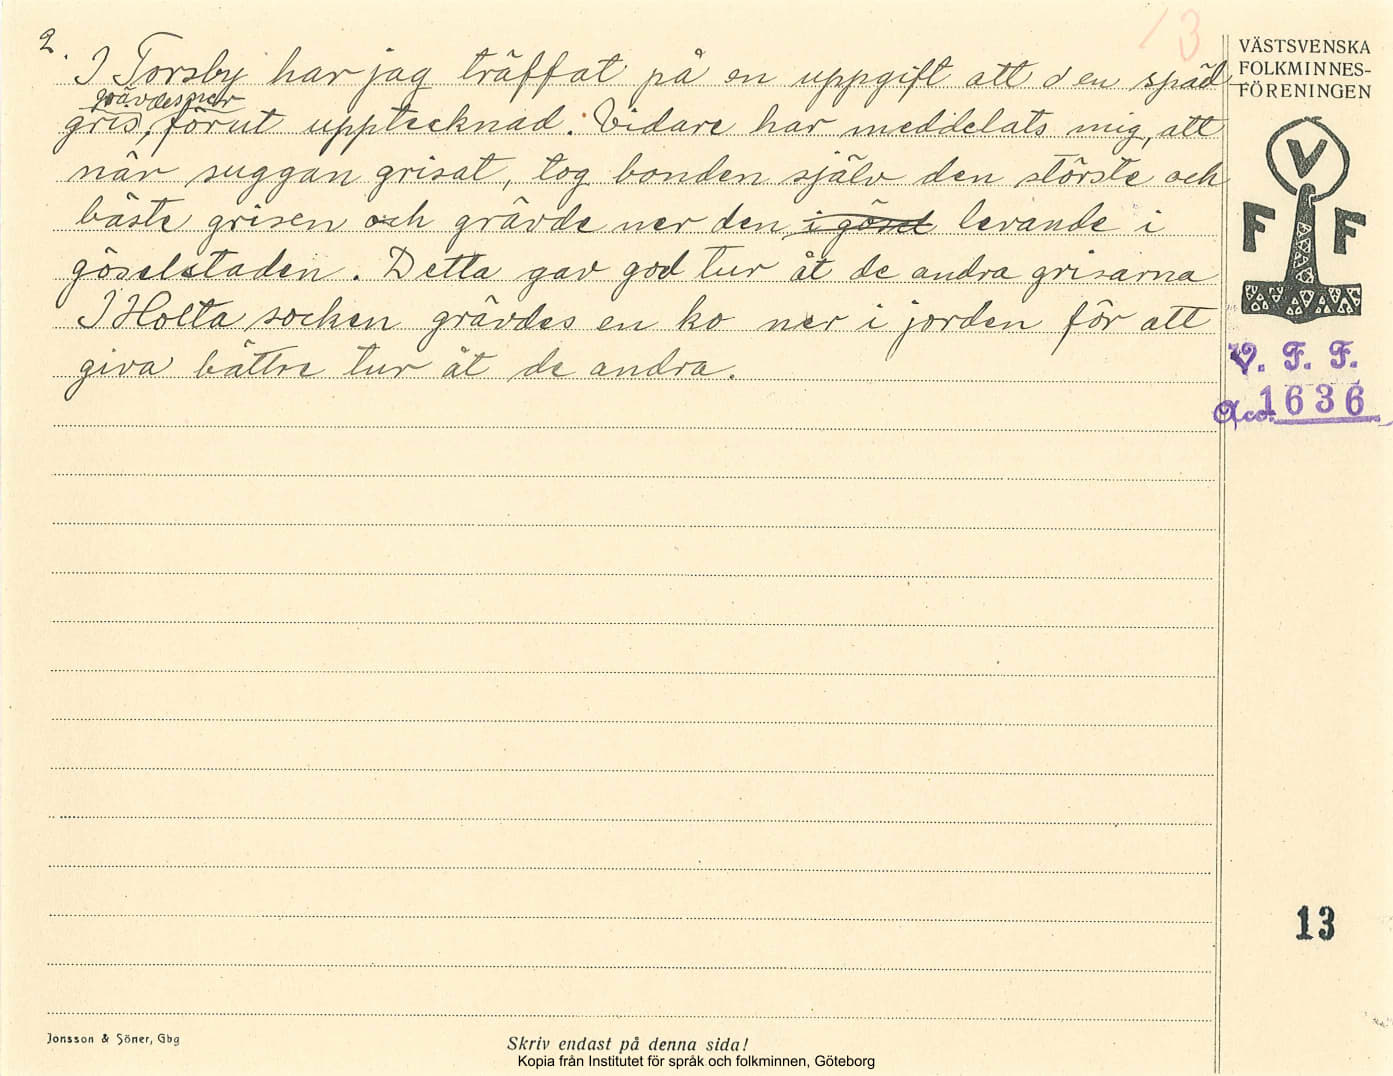 13
2.
I Torsby har jag träffat på en uppgift att den späd
grävdes ner
gris, förut upptecknad. Vidare har meddelats mig, att
när suggan grisat, tog bonden själv den störste och
bäste grisen och grävde ner den i gösel levande i
göselstaden. Detta gav god tur åt de andra grisarna
I Holta socken grävdes en ko ner i jorden för att
giva bättre tur åt de andra.
VÄSTSVENSKA
FOLKMINNES-
FÖRENINGEN
V
F F
V. F. F.
Acc. 1636
13
Jonsson & Söner, Gbg
Skriv endast på denna sida!
Kopia från Institutet för språk och folkminnen, Göteborg